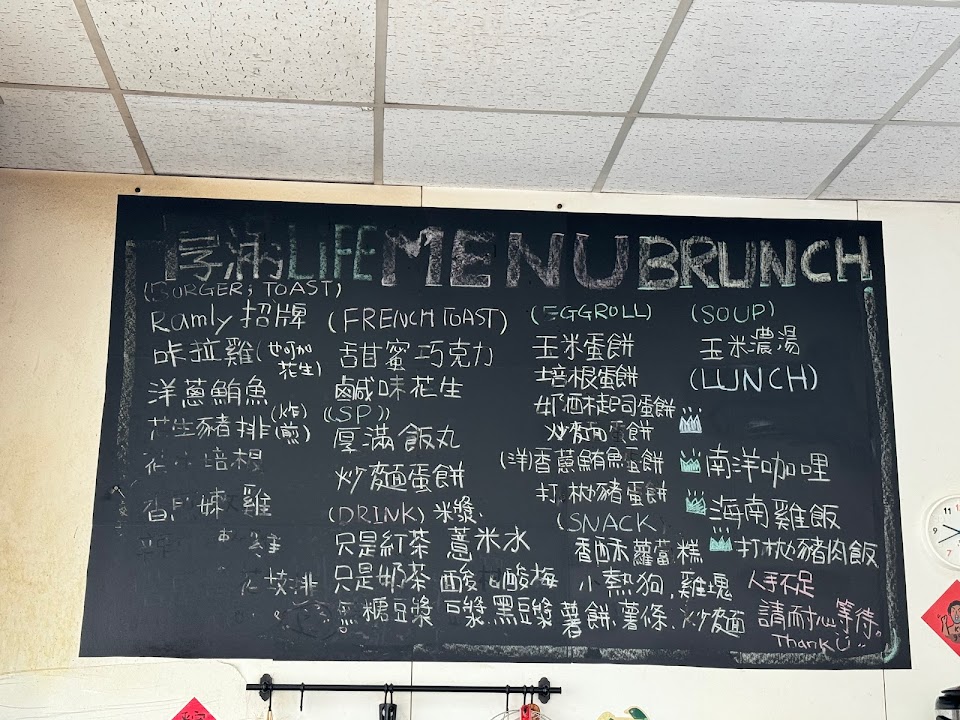 厚滿 LIFE MENU BRUNCH
(BURGER; TOAST)
Ramly 招牌
咔拉雞(也可加花生)
洋蔥鮪魚
花生豬排(炸)(煎)
培根
嫩雞
(FRENCH TOAST)
甜蜜巧克力
鹹味花生
(SP)
厚滿飯丸
炒麵蛋餅
(DRINK) 米漿.
只是紅茶 薏米水
只是奶茶 酸 酸梅
無糖豆漿 豆漿.黑豆漿
(EGGROLL)
玉米蛋餅
培根蛋餅
起司蛋餅
炒麵蛋餅
(洋)香蔥鮪魚蛋餅
打拋豬蛋餅
(SNACK)
香酥蘿蔔糕
小熱狗,雞塊
薯餅.薯條.炒麵
(SOUP)
玉米濃湯
(LUNCH)
南洋咖哩
海南雞飯
打拋豬肉飯
人手不足
請耐心等待。
Thank U